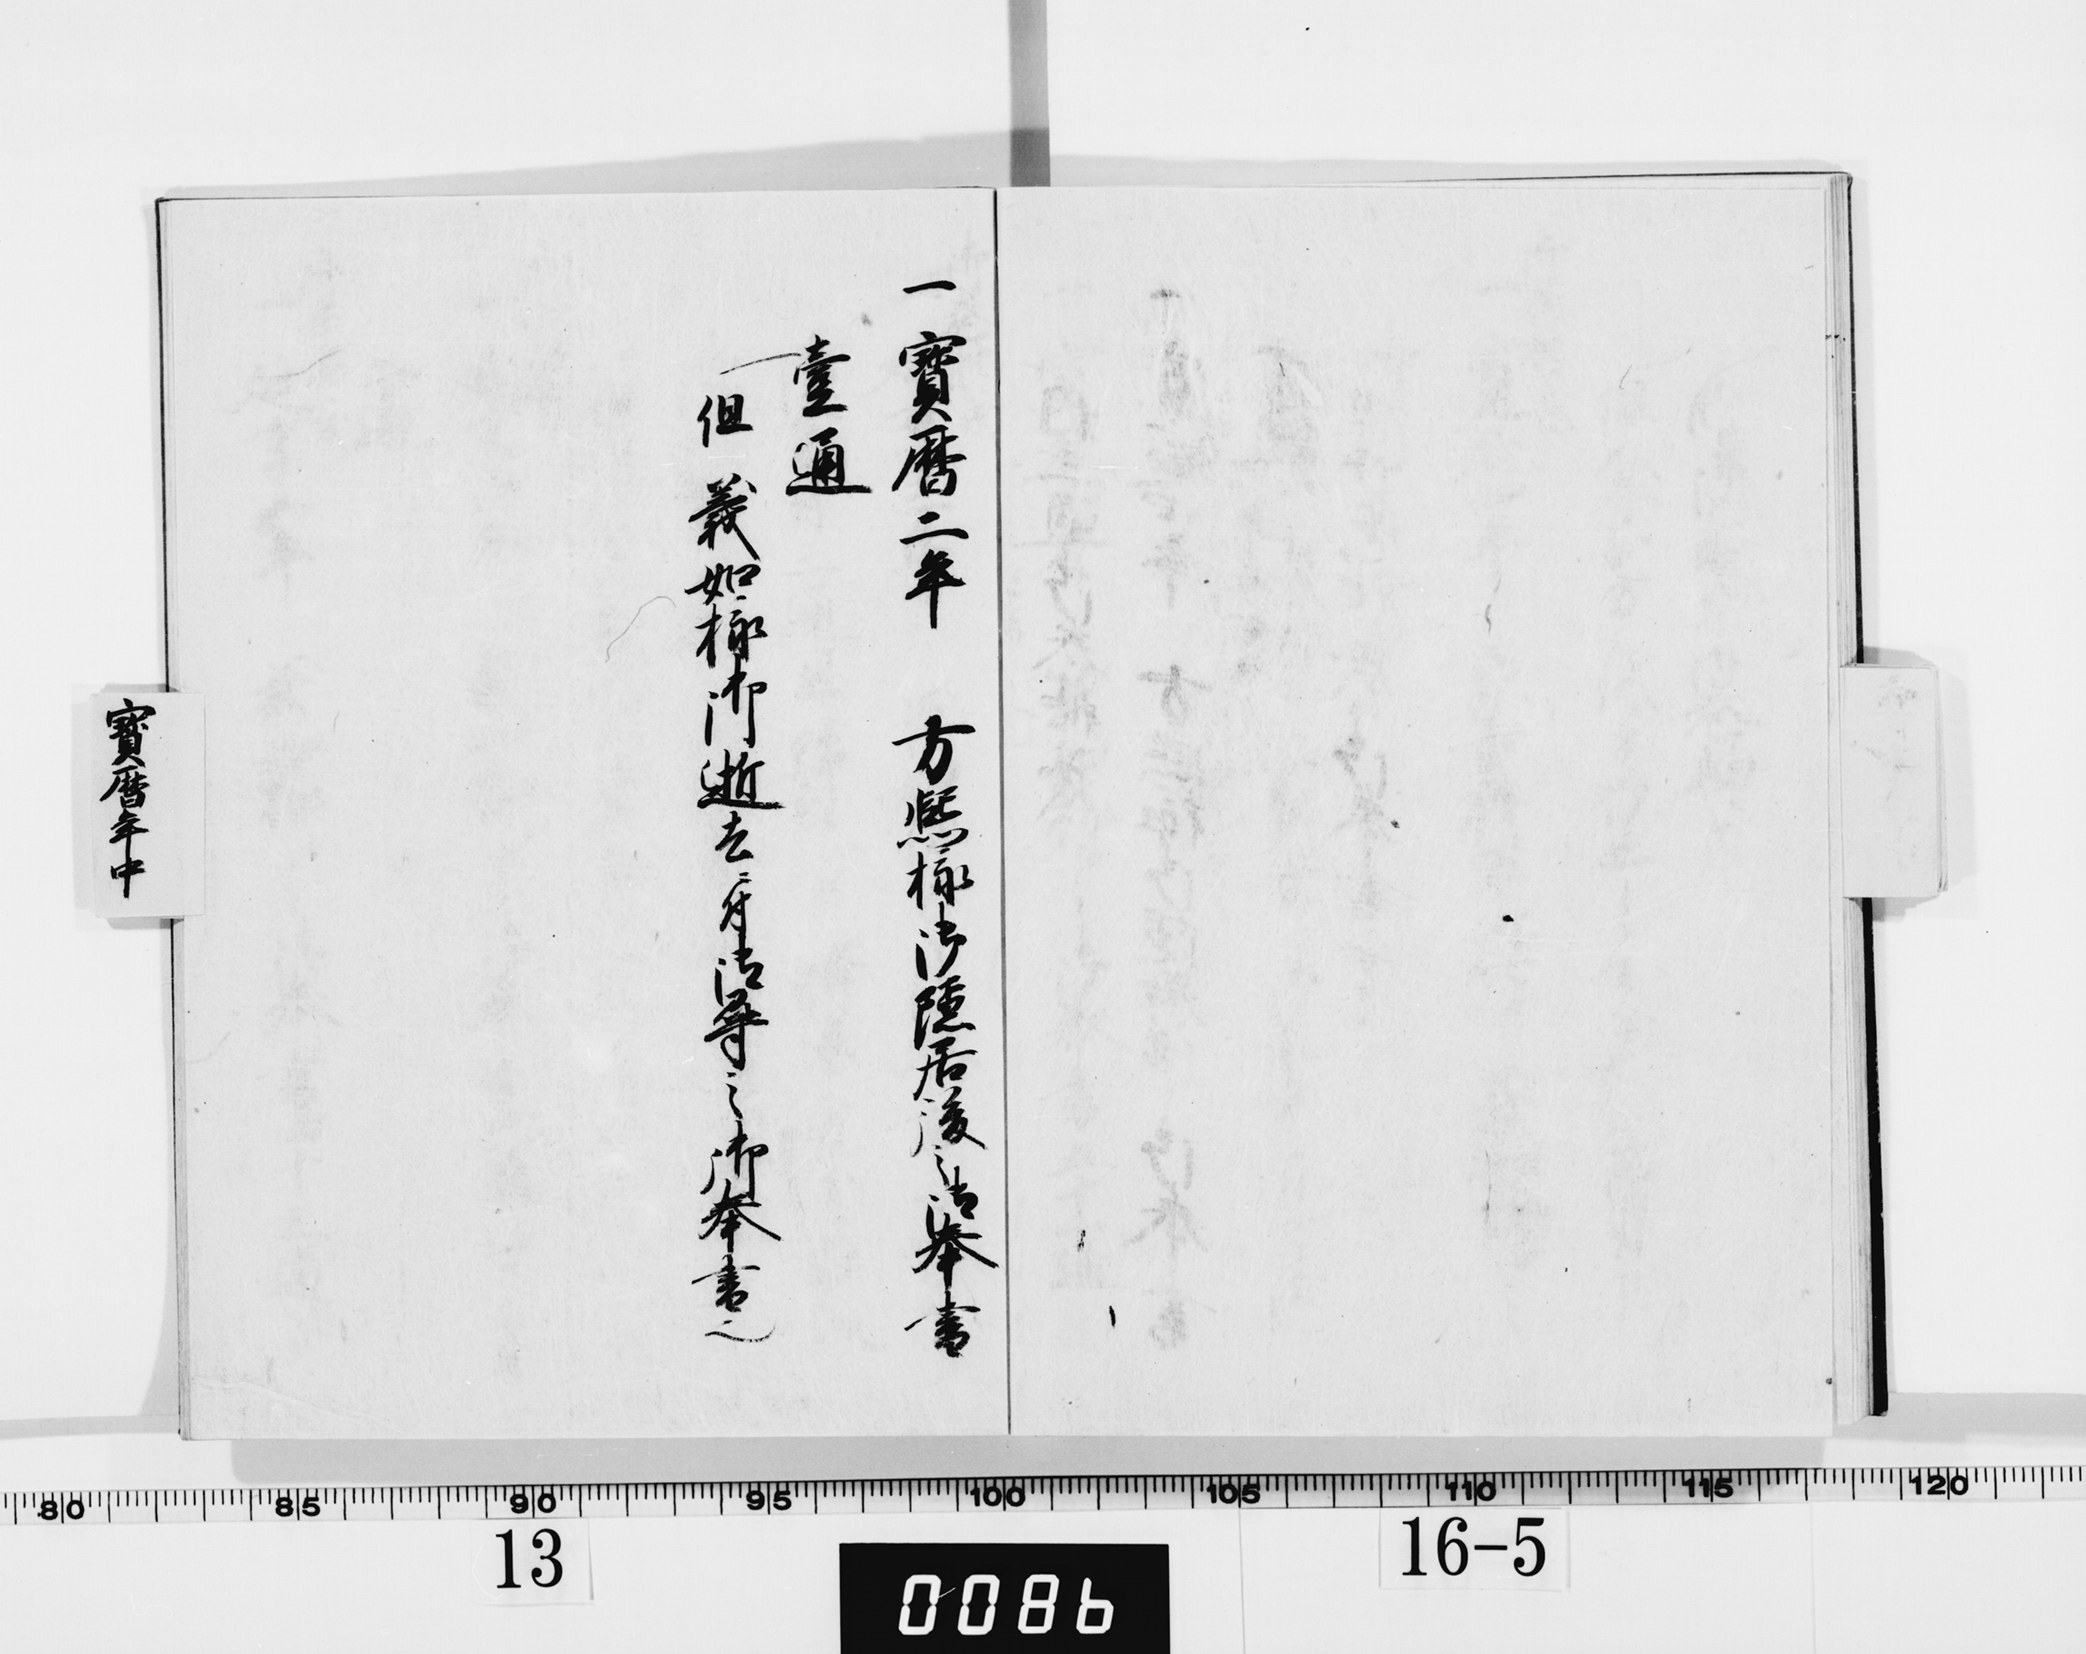 一寶暦二年　方熈様御隠居後之御奉書
壹通
但　義如様御逝去ニ付御尋之御奉書也
寶暦年中
80 85 90 95 100 105 110 115 120
13
0086
16-5